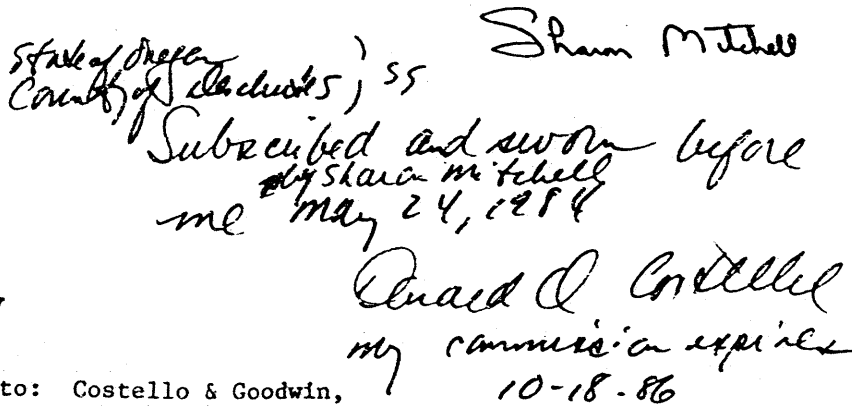 Sharon Mitchell
State of Oregon )
County of Deschutes ) ss
Subscribed and sworn before
by Sharon Mitchell
me May 24, 1984
Costello
my commission expires
to: Costello & Goodwin,
10-18-86